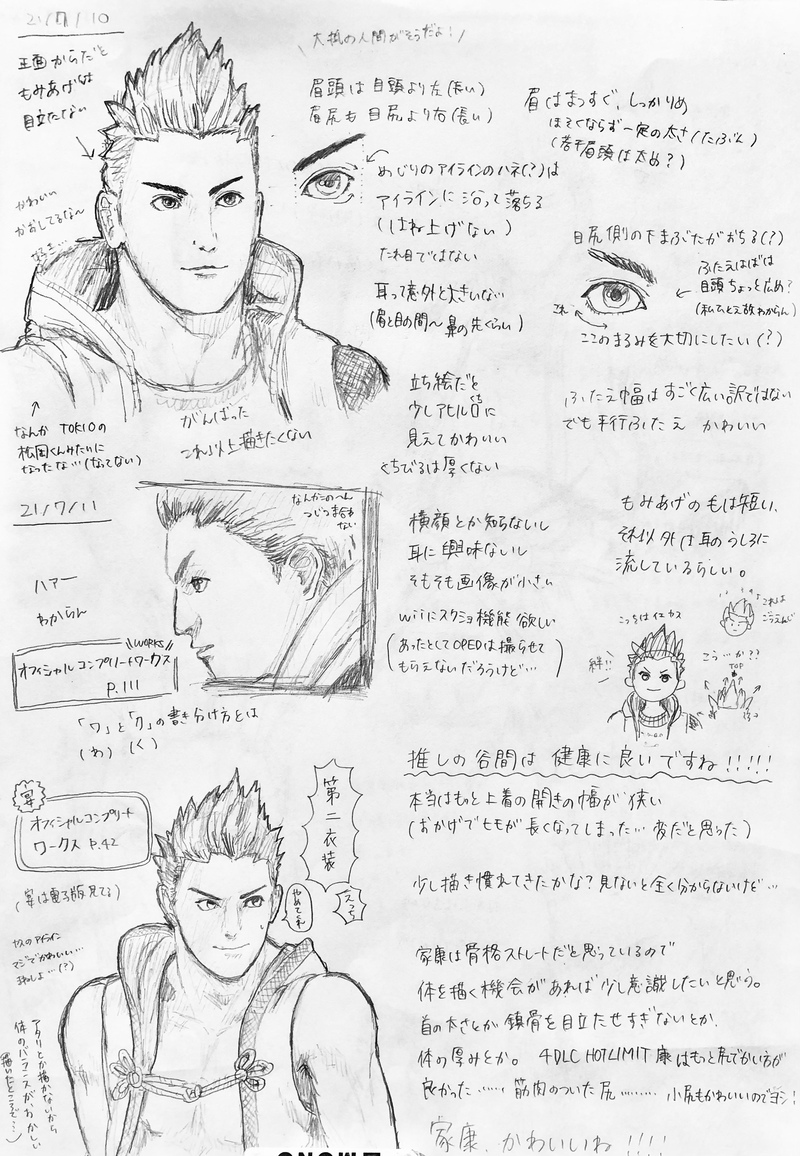 21/7/10
正面からだと
もみあげは
目立たない
大抵の人間がそうだよ!
眉頭は目頭より左(長い)
眉尻も目尻より右(長い)
眉はまっすぐ、しっかりめ
ほそくならず一定の太さ(たぶん)
(若干眉頭は太め?)
かわいい
かおしてるな〜
好き…
めじりのアイラインのハネ(?)は
アイラインに沿って落ちる
(はね上げない)
たれ目ではない
耳って意外と大きいな
(眉と目の間〜鼻の先くらい)
目尻側の下まぶたがおちる(?)
ふたえはばは
目頭ちょっと広め?
(私ひとえ故わからん)
これ
ここのまるみを大切にしたい(?)
立ち絵だと
少しアヒル口に
くち
見えてかわいい
くちびるは厚くない
ふたえ幅はすごく広い訳ではない
でも平行ふたえ かわいい
なんかTOKIOの
松岡くんみたいに
なったな…(なってない)
がんばった
これ以上描きたくない
21/7/11
ハァー
わからん
なんかこのへん
つじつま合わ
ない
横顔とか知らないし
耳に興味ないし
そもそも画像が小さい
wiiにスクショ機能欲しい
(あったとしてOPEDは撮らせて
もらえないだろうけど…)
もみあげの毛は短い、
それ以外は耳のうしろに
流しているらしい。
WORKS
オフィシャルコンプリートワークス
P.111
「ワ」と「ク」の書き分け方とは
(わ) (く)
こっちはイエヤス
絆!!
これは
ごうえんじ
こう…か??
TOP
推しの谷間は健康に良いですね!!!!!
本当はもっと上着の開きの幅が狭い
(おかげでヒモが長くなってしまった…変だと思った)
少し描き慣れてきたかな?見ないと全く分からないけど…
宴
オフィシャルコンプリート
ワークス P.42
(宴は電子版見てる)
第二衣装
えっち
やめてくれ
ヤスのアイライン
マジでかわいい…
アタリとか描かないから
体のバランスがおかしい
描いたところで…)
家康は骨格ストレートだと思っているので
体を描く機会があれば少し意識したいと思う。
首の太さとか鎖骨を目立たせすぎないとか、
体の厚みとか。 4DLC HOTLIMIT 康はもっと尻でかい方が
良かった……筋肉のついた尻……… 小尻もかわいいのでヨシ!
家康、かわいいね!!!!